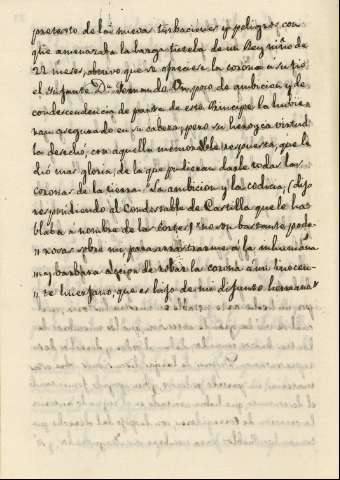 pretexto de las nuevas turbaciones y peligros con
que amenazaba la larga tutela de un Rey niño de
22 meses, obtuvo que se ofreciese la corona a su tio
el Infante Dn. Fernando. Un poco de ambicion y de
condescendencia de parte de este Principe la hubie-
ran asegurado en su cabeza; pero su heroyca virtud
la desechó, con aquella memorable respuesta, que le
dió mas gloria, de la que pudieran darle todas las
coronas de la tierra. "La ambicion y la codicia, (dijo
respondiendo al Condestable de Castilla que le ha-
blaba a nombre de las Cortes) no son bastante pode-
"rosas sobre mi, para arrastrarme a la inhumana
"y barbara accion de robar la corona a un inocen-
"te huerfano, que es hijo de mi difunto hermano"